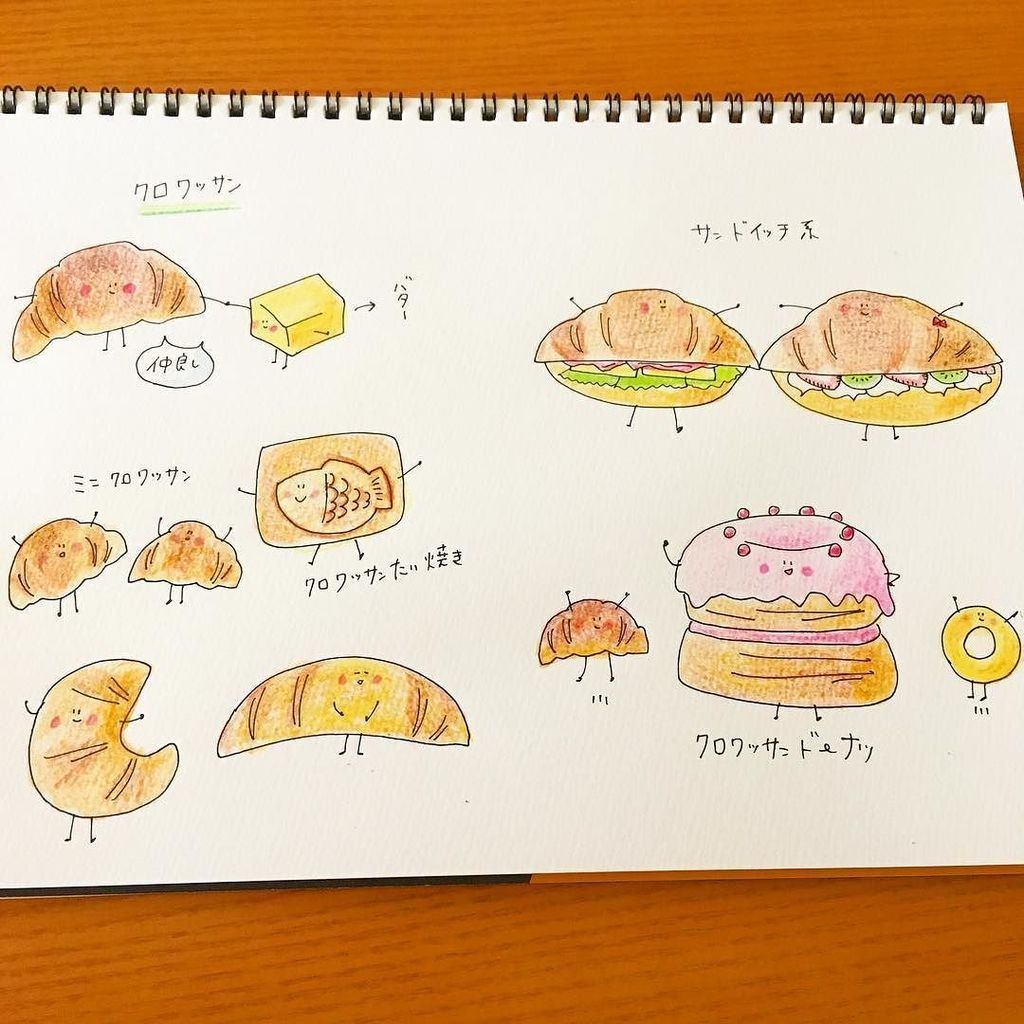 クロワッサン
バター
仲良し
サンドイッチ系
ミニクロワッサン
クロワッサンたい焼き
クロワッサンドーナツ